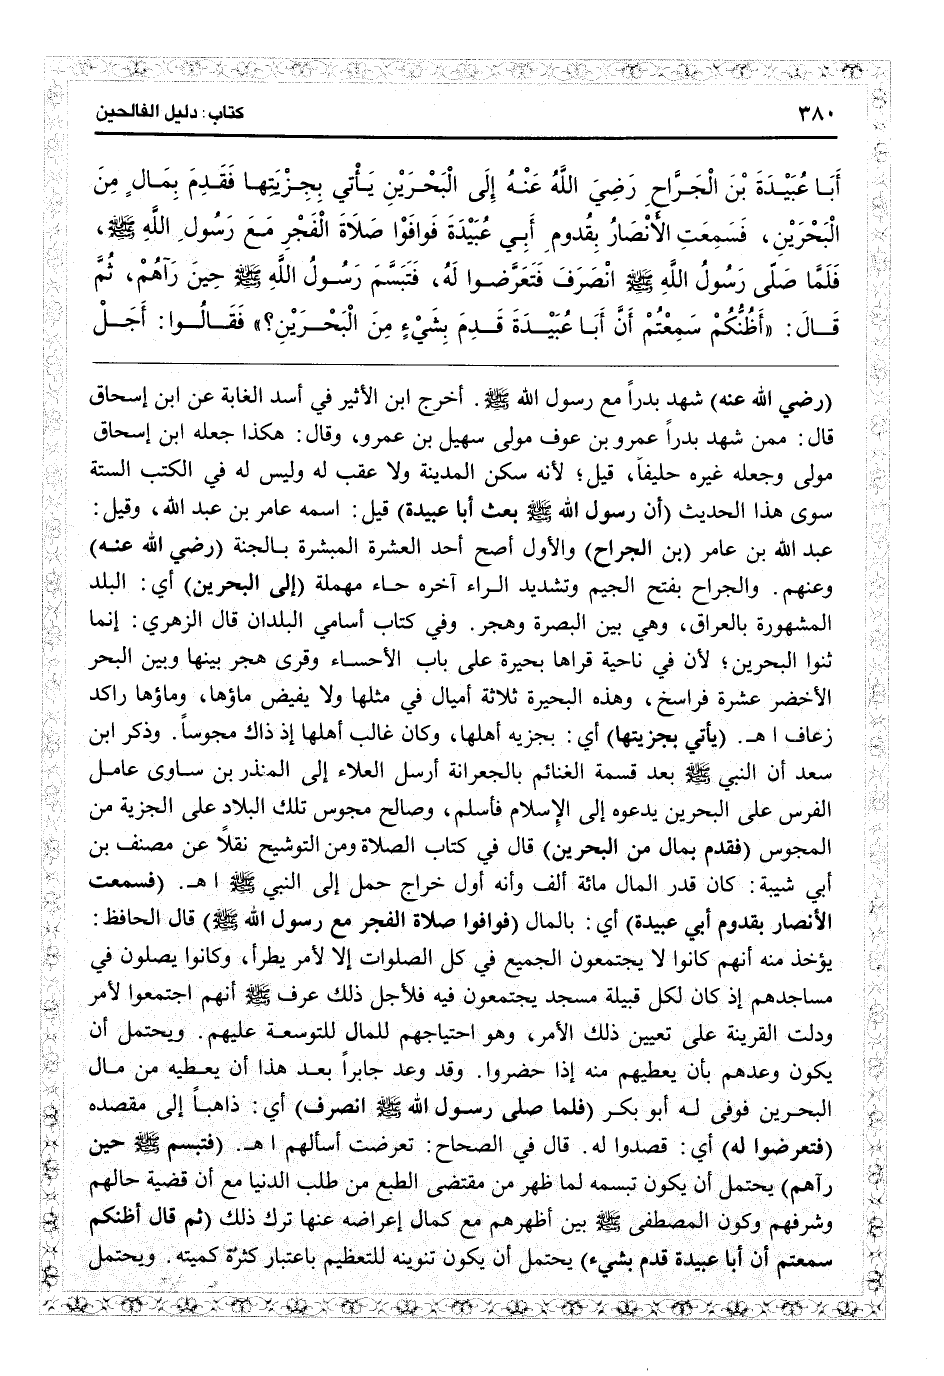 ٣٨٠
كتاب: دليل الفالحين
أَبَا عُبَيْدَةَ بْنَ الْجَرَّاحِ رَضِيَ اللَّهُ عَنْهُ إِلَى الْبَحْرَيْنِ يَأْتِي بِجِزْيَتِها فَقَدِمَ بِمَالٍ مِنَ
الْبَحْرَيْنِ، فَسَمِعَتِ الْأَنْصَارُ بِقُدومِ أَبِي عُبَيْدَةَ فَوافَوْا صَلَاةَ الْفَجْرِ مَعَ رَسُولِ اللَّهِ ﷺ،
فَلَمَّا صَلَّى رَسُولُ اللَّهِ ﷺ انْصَرَفَ فَتَعَرَّضوا لَهُ، فَتَبَسَّمَ رَسُولُ اللَّهِ ﷺ حِينَ رَآهُمْ، ثُمَّ
قَالَ: «أَظُنُّكُمْ سَمِعْتُمْ أَنَّ أَبَا عُبَيْدَةَ قَدِمَ بِشَيْءٍ مِنَ الْبَحْرَيْنِ؟» فَقَالُوا: أَجَلْ
(رضي الله عنه) شهد بدراً مع رسول الله ﷺ. أخرج ابن الأثير في أسد الغابة عن ابن إسحاق
قال: ممن شهد بدراً عمرو بن عوف مولى سهيل بن عمرو، وقال: هكذا جعله ابن إسحاق
مولى وجعله غيره حليفاً، قيل؛ لأنه سكن المدينة ولا عقب له وليس له في الكتب الستة
سوى هذا الحديث (أن رسول الله ﷺ بعث أبا عبيدة) قيل: اسمه عامر بن عبد الله، وقيل:
عبد الله بن عامر (بن الجراح) والأول أصح أحد العشرة المبشرة بالجنة (رضي الله عنه)
وعنهم. والجراح بفتح الجيم وتشديد الراء آخره حاء مهملة (إلى البحرين) أي: البلد
المشهورة بالعراق، وهي بين البصرة وهجر. وفي كتاب أسامي البلدان قال الزهري: إنما
ثنوا البحرين؛ لأن في ناحية قراها بحيرة على باب الأحساء وقرى هجر بينها وبين البحر
الأخضر عشرة فراسخ، وهذه البحيرة ثلاثة أميال في مثلها ولا يفيض ماؤها، وماؤها راكد
زعاف ا هـ. (يأتي بجزيتها) أي: بجزيه أهلها، وكان غالب أهلها إذ ذاك مجوساً. وذكر ابن
سعد أن النبي ﷺ بعد قسمة الغنائم بالجعرانة أرسل العلاء إلى المنذر بن ساوى عامل
الفرس على البحرين يدعوه إلى الإسلام فأسلم، وصالح مجوس تلك البلاد على الجزية من
المجوس (فقدم بمال من البحرين) قال في كتاب الصلاة ومن التوشيح نقلاً عن مصنف بن
أبي شيبة: كان قدر المال مائة ألف وأنه أول خراج حمل إلى النبي ﷺ ا هـ. (فسمعت
الأنصار بقدوم أبي عبيدة) أي: بالمال (فوافوا صلاة الفجر مع رسول الله ﷺ) قال الحافظ:
يؤخذ منه أنهم كانوا لا يجتمعون الجميع في كل الصلوات إلا لأمر يطرأ، وكانوا يصلون في
مساجدهم إذ كان لكل قبيلة مسجد يجتمعون فيه فلأجل ذلك عرف ﷺ أنهم اجتمعوا لأمر
ودلت القرينة على تعيين ذلك الأمر، وهو احتياجهم للمال للتوسعة عليهم. ويحتمل أن
يكون وعدهم بأن يعطيهم منه إذا حضروا. وقد وعد جابراً بعد هذا أن يعطيه من مال
البحرين فوفى له أبو بكر (فلما صلى رسول الله ﷺ انصرف) أي: ذاهباً إلى مقصده
(فتعرضوا له) أي: قصدوا له. قال في الصحاح: تعرضت أسألهم ا هـ. (فتبسم ﷺ حين
رآهم) يحتمل أن يكون تبسمه لما ظهر من مقتضى الطبع من طلب الدنيا مع أن قضية حالهم
وشرفهم وكون المصطفى ﷺ بين أظهرهم مع كمال إعراضه عنها ترك ذلك (ثم قال أظنكم
سمعتم أن أبا عبيدة قدم بشيء) يحتمل أن يكون تنوينه للتعظيم باعتبار كثرة كميته. ويحتمل